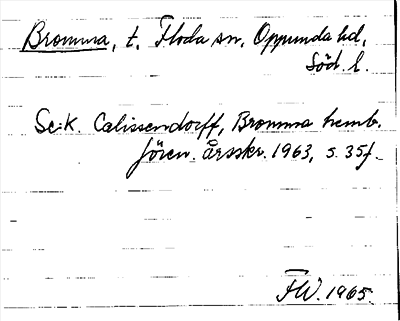 Bromma, t. Floda sn, Oppunda hd,
Söd. l.
Se: K. Calissendorff, Bromma hemb.
fören. årsskr. 1963, s. 35f.
FW. 1965.